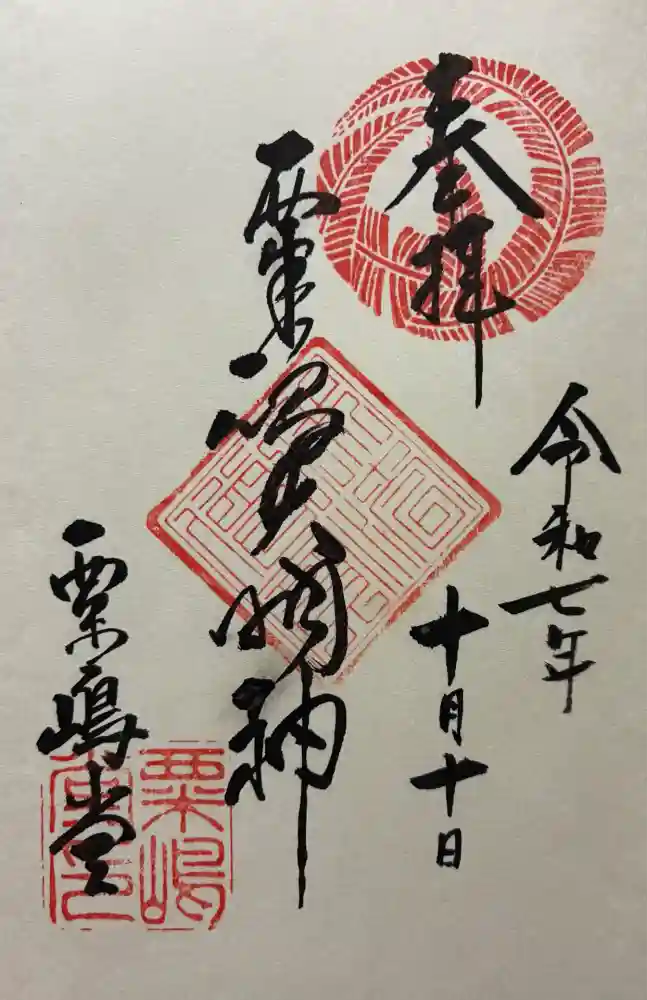 奉拝
令和七年
十月十日
粟嶋大明神
粟嶋堂
粟嶋
堂印